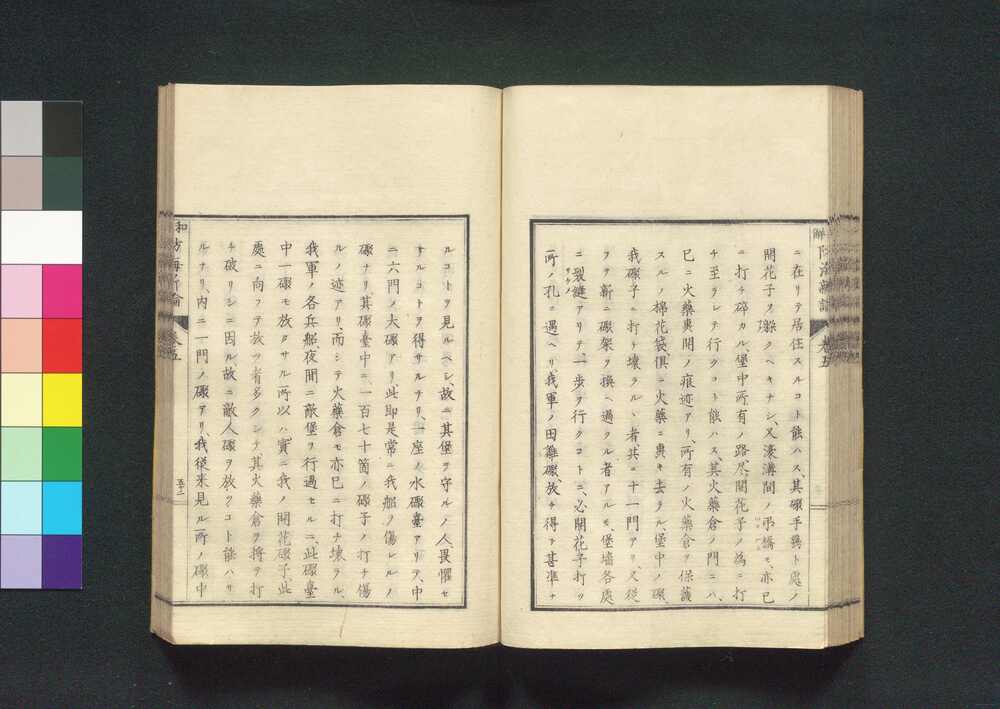 ニ在リテ居住スルコト能ハス、其礟手興ト處ノ
開花子ヲ躱クヘキナシ、又濠溝間ノ吊橋モ、亦已
ニ打チ碎カル、堡中所有ノ路、尽ク開花子ノ為ニ打
チ至ラレテ行クコト能ハス、其火藥倉ノ門ニハ、
已ニ火藥轟開ノ痕迹アリ、所有ノ火藥倉ヲ保護
スルノ棉花袋、俱ニ火藥ニ轟キ去ラル、堡中ノ礟、
我礟子ニ打チ壊ラルヽ者、共ニ十一門アリ、又從
フテ新ニ礟架ヲ換ヘ過クル者アルモ、堡墻各處
ニ裂縫アリテ、一歩ヲ行クコトニ、必開花子打ツ
所ノ孔ニ遇ヘリ、我軍ノ田雞礟、放チ得テ甚準ナ
ルコトヲ見ルヘシ、故ニ其堡ヲ守ルノ人、畏懼セ
サルコトヲ得サルナリ、一座ノ水礟臺アリテ、中
ニ六門ノ大礟アリ、此即是常ニ我船ヲ傷レルノ
礟ナリ、其礟臺中ニ、一百七十箇ノ礟子ノ打チ傷
ルノ迹アリ、而シテ火藥倉モ亦已ニ打チ壊ラル、
我軍ノ各兵船、夜間ニ敵堡ヲ行過セルニ、此礟臺
中一礟モ放タサル所以ハ、實ニ我ノ開花礟子、此
處ニ向フテ放ツ者多クシテ其火藥倉ヲ將ヲ打
チ破リシニ因ル、故ニ敵人礟ヲ放ツコト能ハサ
ルナリ、内ニ一門ノ礟アリ、我從来見ル所ノ礟中